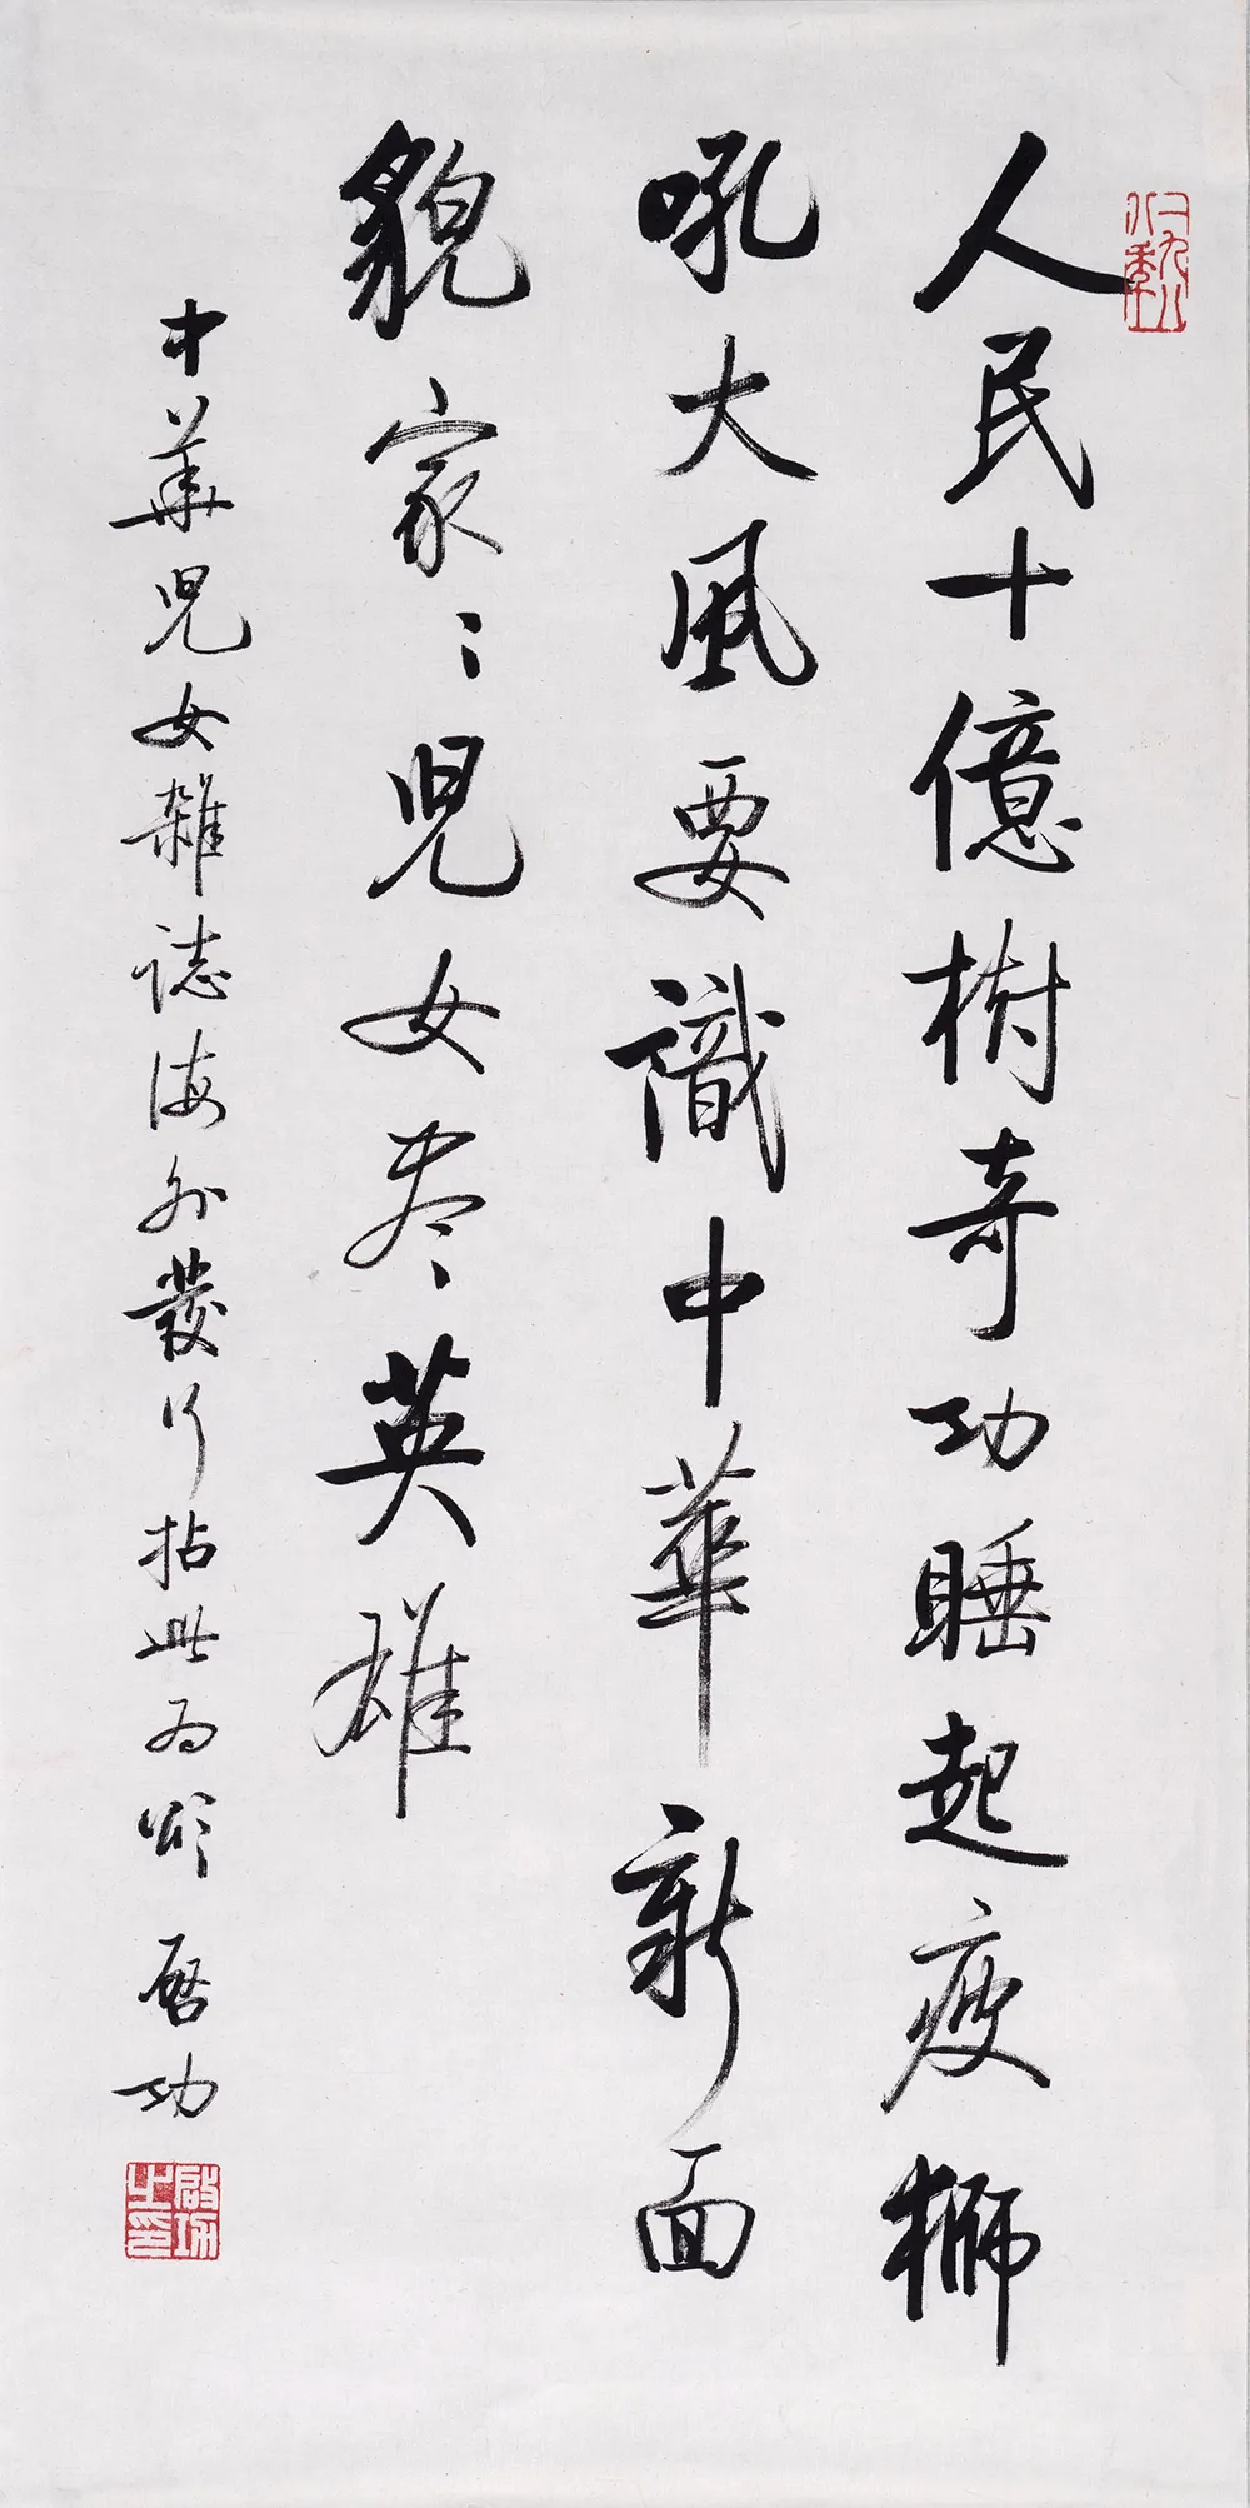 人民十億樹奇功睡起疲獅
吼大風要識中華新面
貌家〻兒女盡英雄
中華兒女雜誌海外發行拈此為頌 啓功
啟功之印